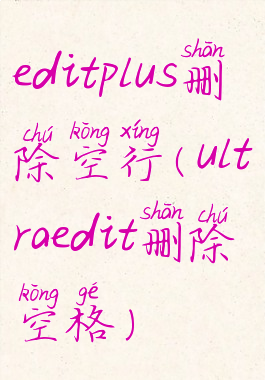 shān
editplus删
chú kōng xíng
除空行(ult
shān chú
raedit删除
kōng gé
空格)